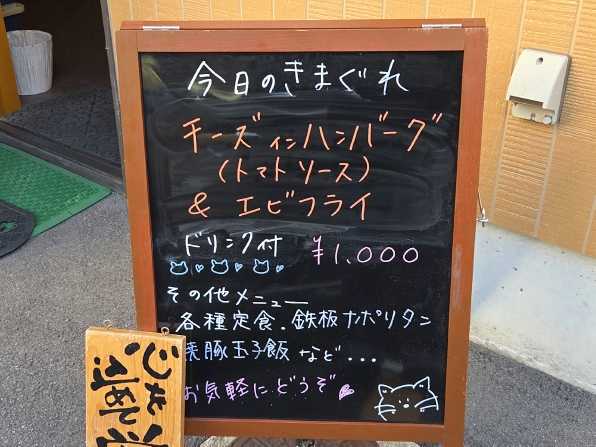 今日のきまぐれ
チーズインハンバーグ
(トマトソース)
& エビフライ
ドリンク付 ¥1,000
その他メニュー
各種定食.鉄板ナポリタン
豚玉子飯 など...
お気軽にどうぞ
心を
止めて